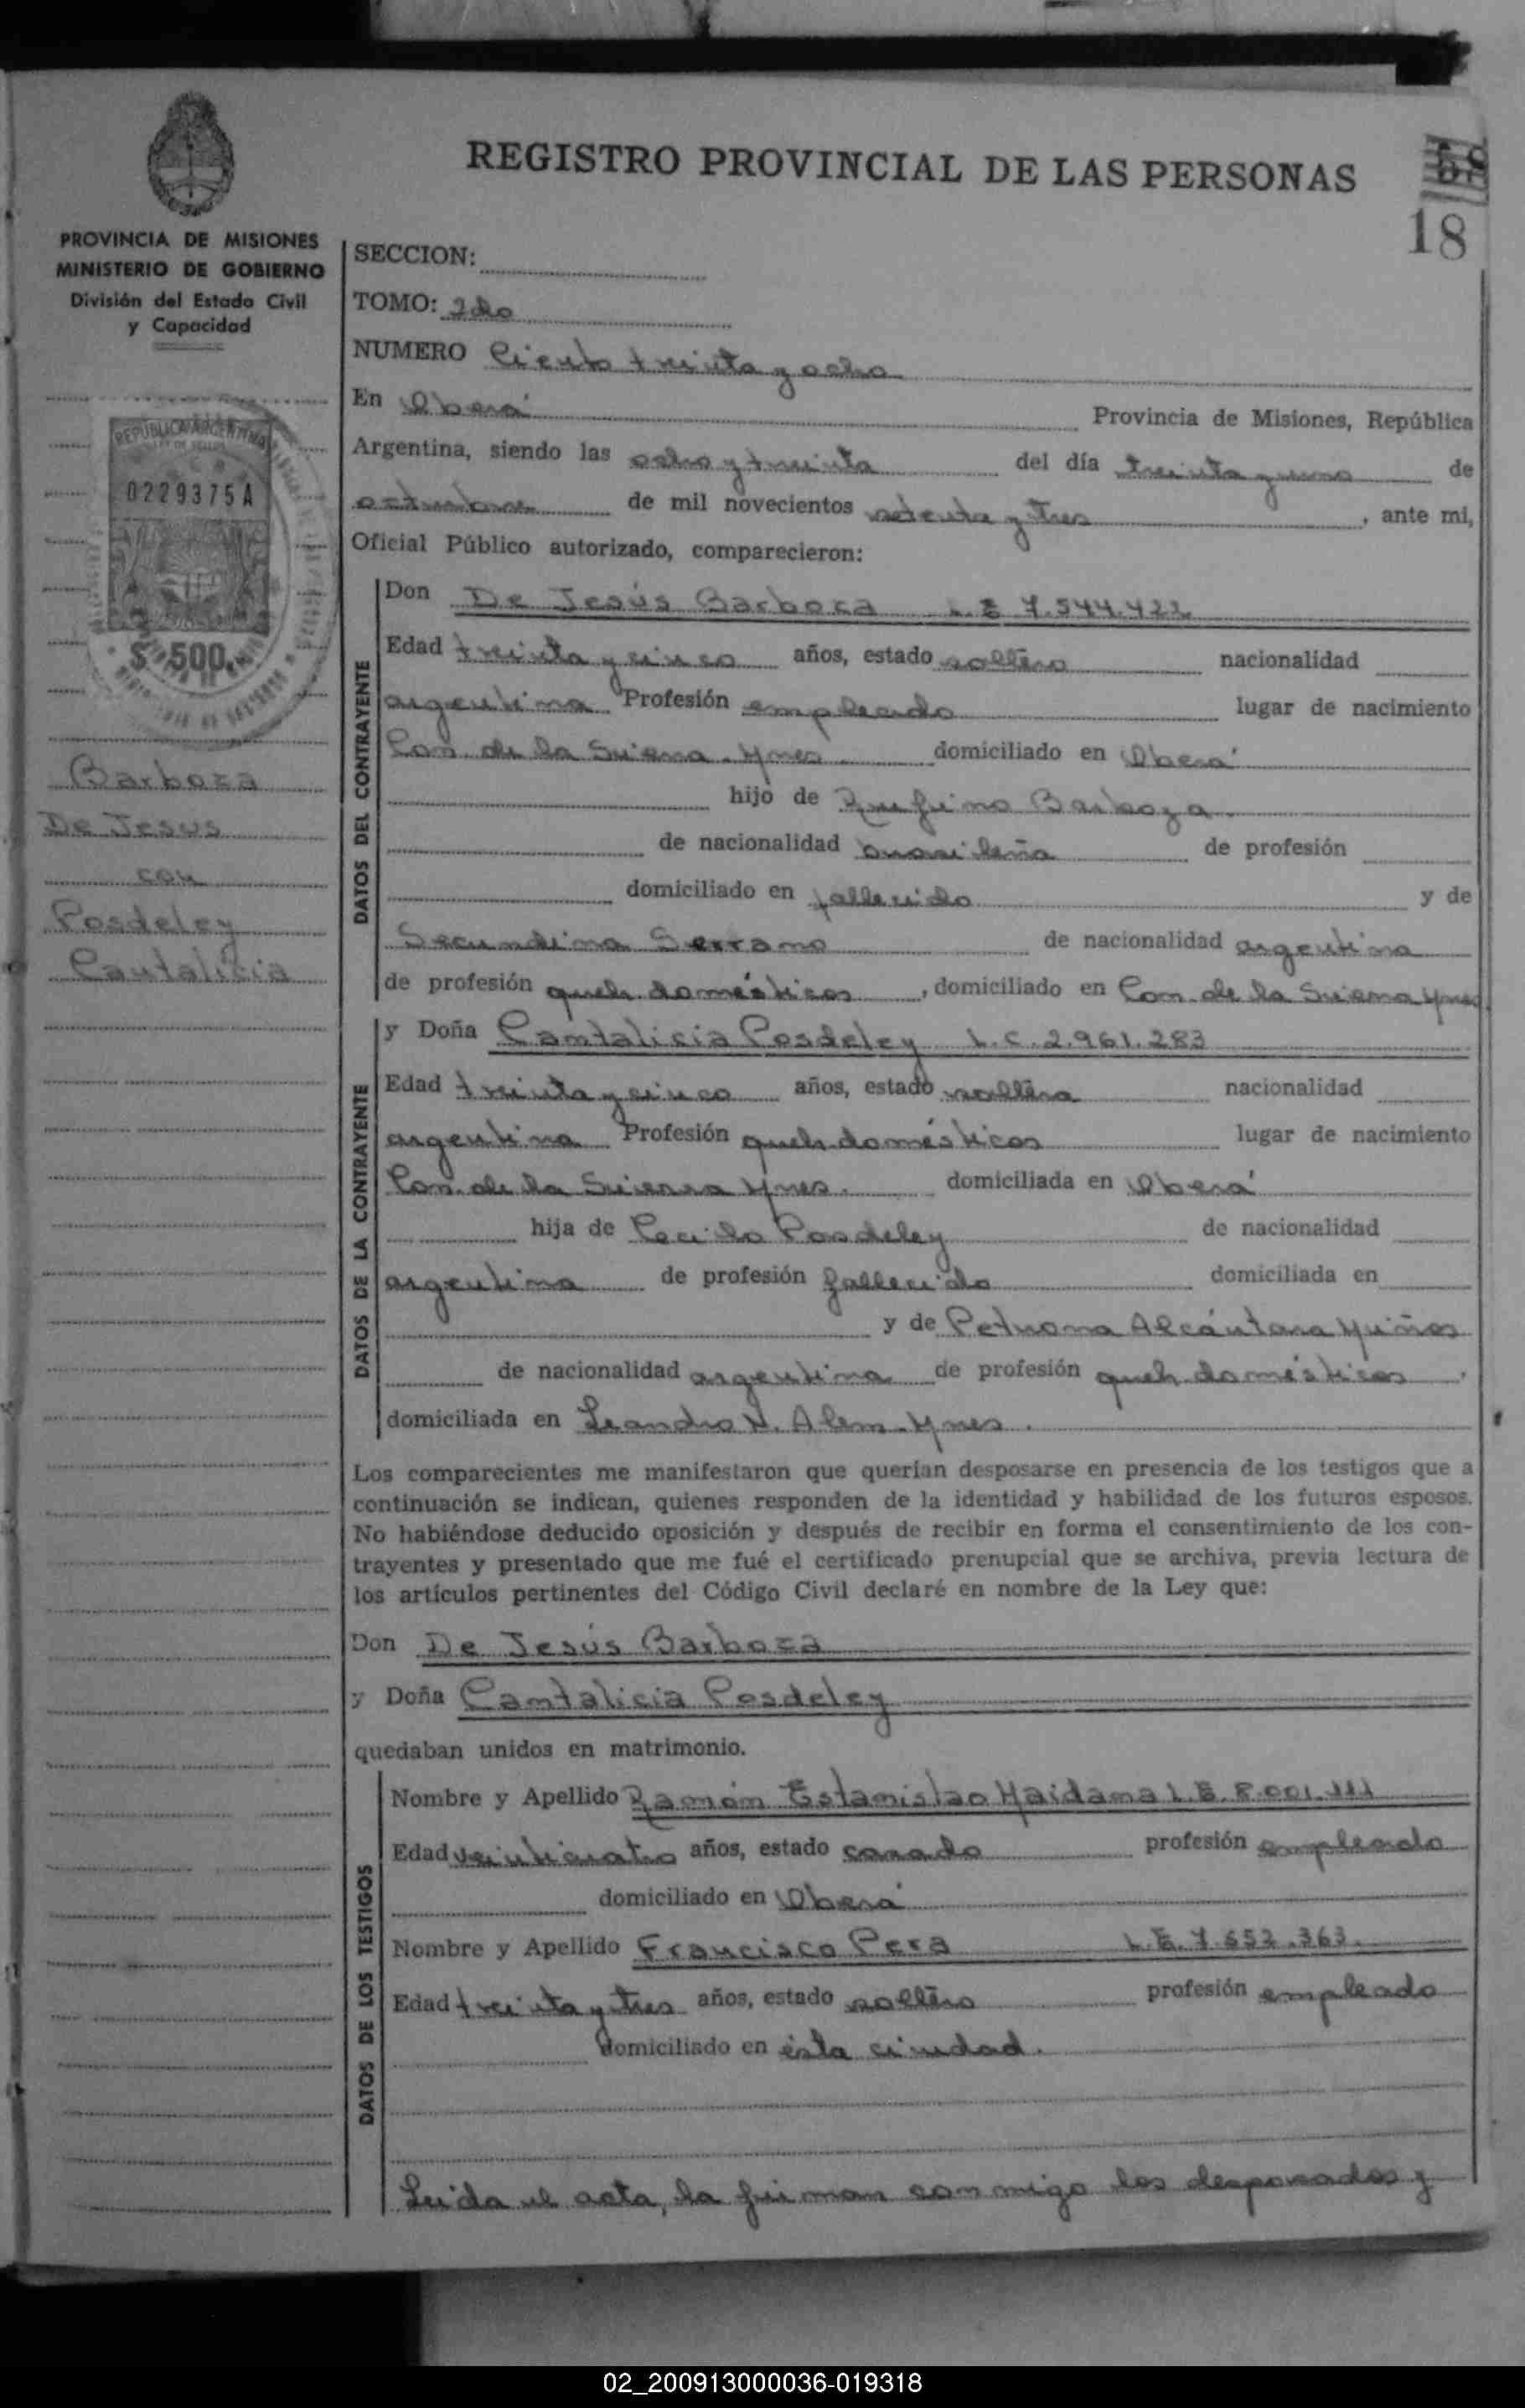 REGISTRO PROVINCIAL DE LAS PERSONAS
18
PROVINCIA DE MISIONES
MINISTERIO DE GOBIERNO
División del Estado Civil
y Capacidad
REPUBLICA ARGENTINA
0229375A
$ 500.-
Barboza
De Jesus
con
Posdeley
Cantalicia
SECCION:
TOMO: 2do
NUMERO Ciento treinta y ocho
En Oberá Provincia de Misiones, República
Argentina, siendo las ocho y treinta del día treinta y uno de
octubre de mil novecientos setenta y tres, ante mi,
Oficial Público autorizado, comparecieron:
DATOS DEL CONTRAYENTE
Don De Jesús Barboza L.E 7.544.422
Edad treinta y cinco años, estado soltero nacionalidad
argentina Profesión empleado lugar de nacimiento
Con. de la Sierra - Mnes. domiciliado en Oberá
hijo de Rufino Barboza
de nacionalidad brasileña de profesión
domiciliado en fallecido y de
Secundina Serrano de nacionalidad argentina
de profesión queh. domésticos, domiciliado en Con. de la Sierra Mnes.
DATOS DE LA CONTRAYENTE
y Doña Cantalicia Posdeley L.C. 2.961.283
Edad treinta y cinco años, estado soltera nacionalidad
argentina Profesión queh. domésticos lugar de nacimiento
Con. de la Sierra Mnes. domiciliada en Oberá
hija de Cecilo Posdeley de nacionalidad
argentina de profesión fallecido domiciliada en
y de Petrona Alcántara
de nacionalidad argentina de profesión queh. domésticos,
domiciliada en Leandro N. Alem - Mnes.
Los comparecientes me manifestaron que querían desposarse en presencia de los testigos que a
continuación se indican, quienes responden de la identidad y habilidad de los futuros esposos.
No habiéndose deducido oposición y después de recibir en forma el consentimiento de los con-
trayentes y presentado que me fué el certificado prenupcial que se archiva, previa lectura de
los artículos pertinentes del Código Civil declaré en nombre de la Ley que:
Don De Jesús Barboza
y Doña Cantalicia Posdeley
quedaban unidos en matrimonio.
DATOS DE LOS TESTIGOS
Nombre y Apellido Ramón Estanislao Maidana L.E. 8.001.111
Edad veinticuatro años, estado casado profesión empleado
domiciliado en Oberá
Nombre y Apellido Francisco Pera L.E. 7.652.363.
Edad treinta y tres años, estado soltero profesión empleado
domiciliado en ésta ciudad.
Leida el acta, la firman conmigo los desposados y
02_200913000036-019318